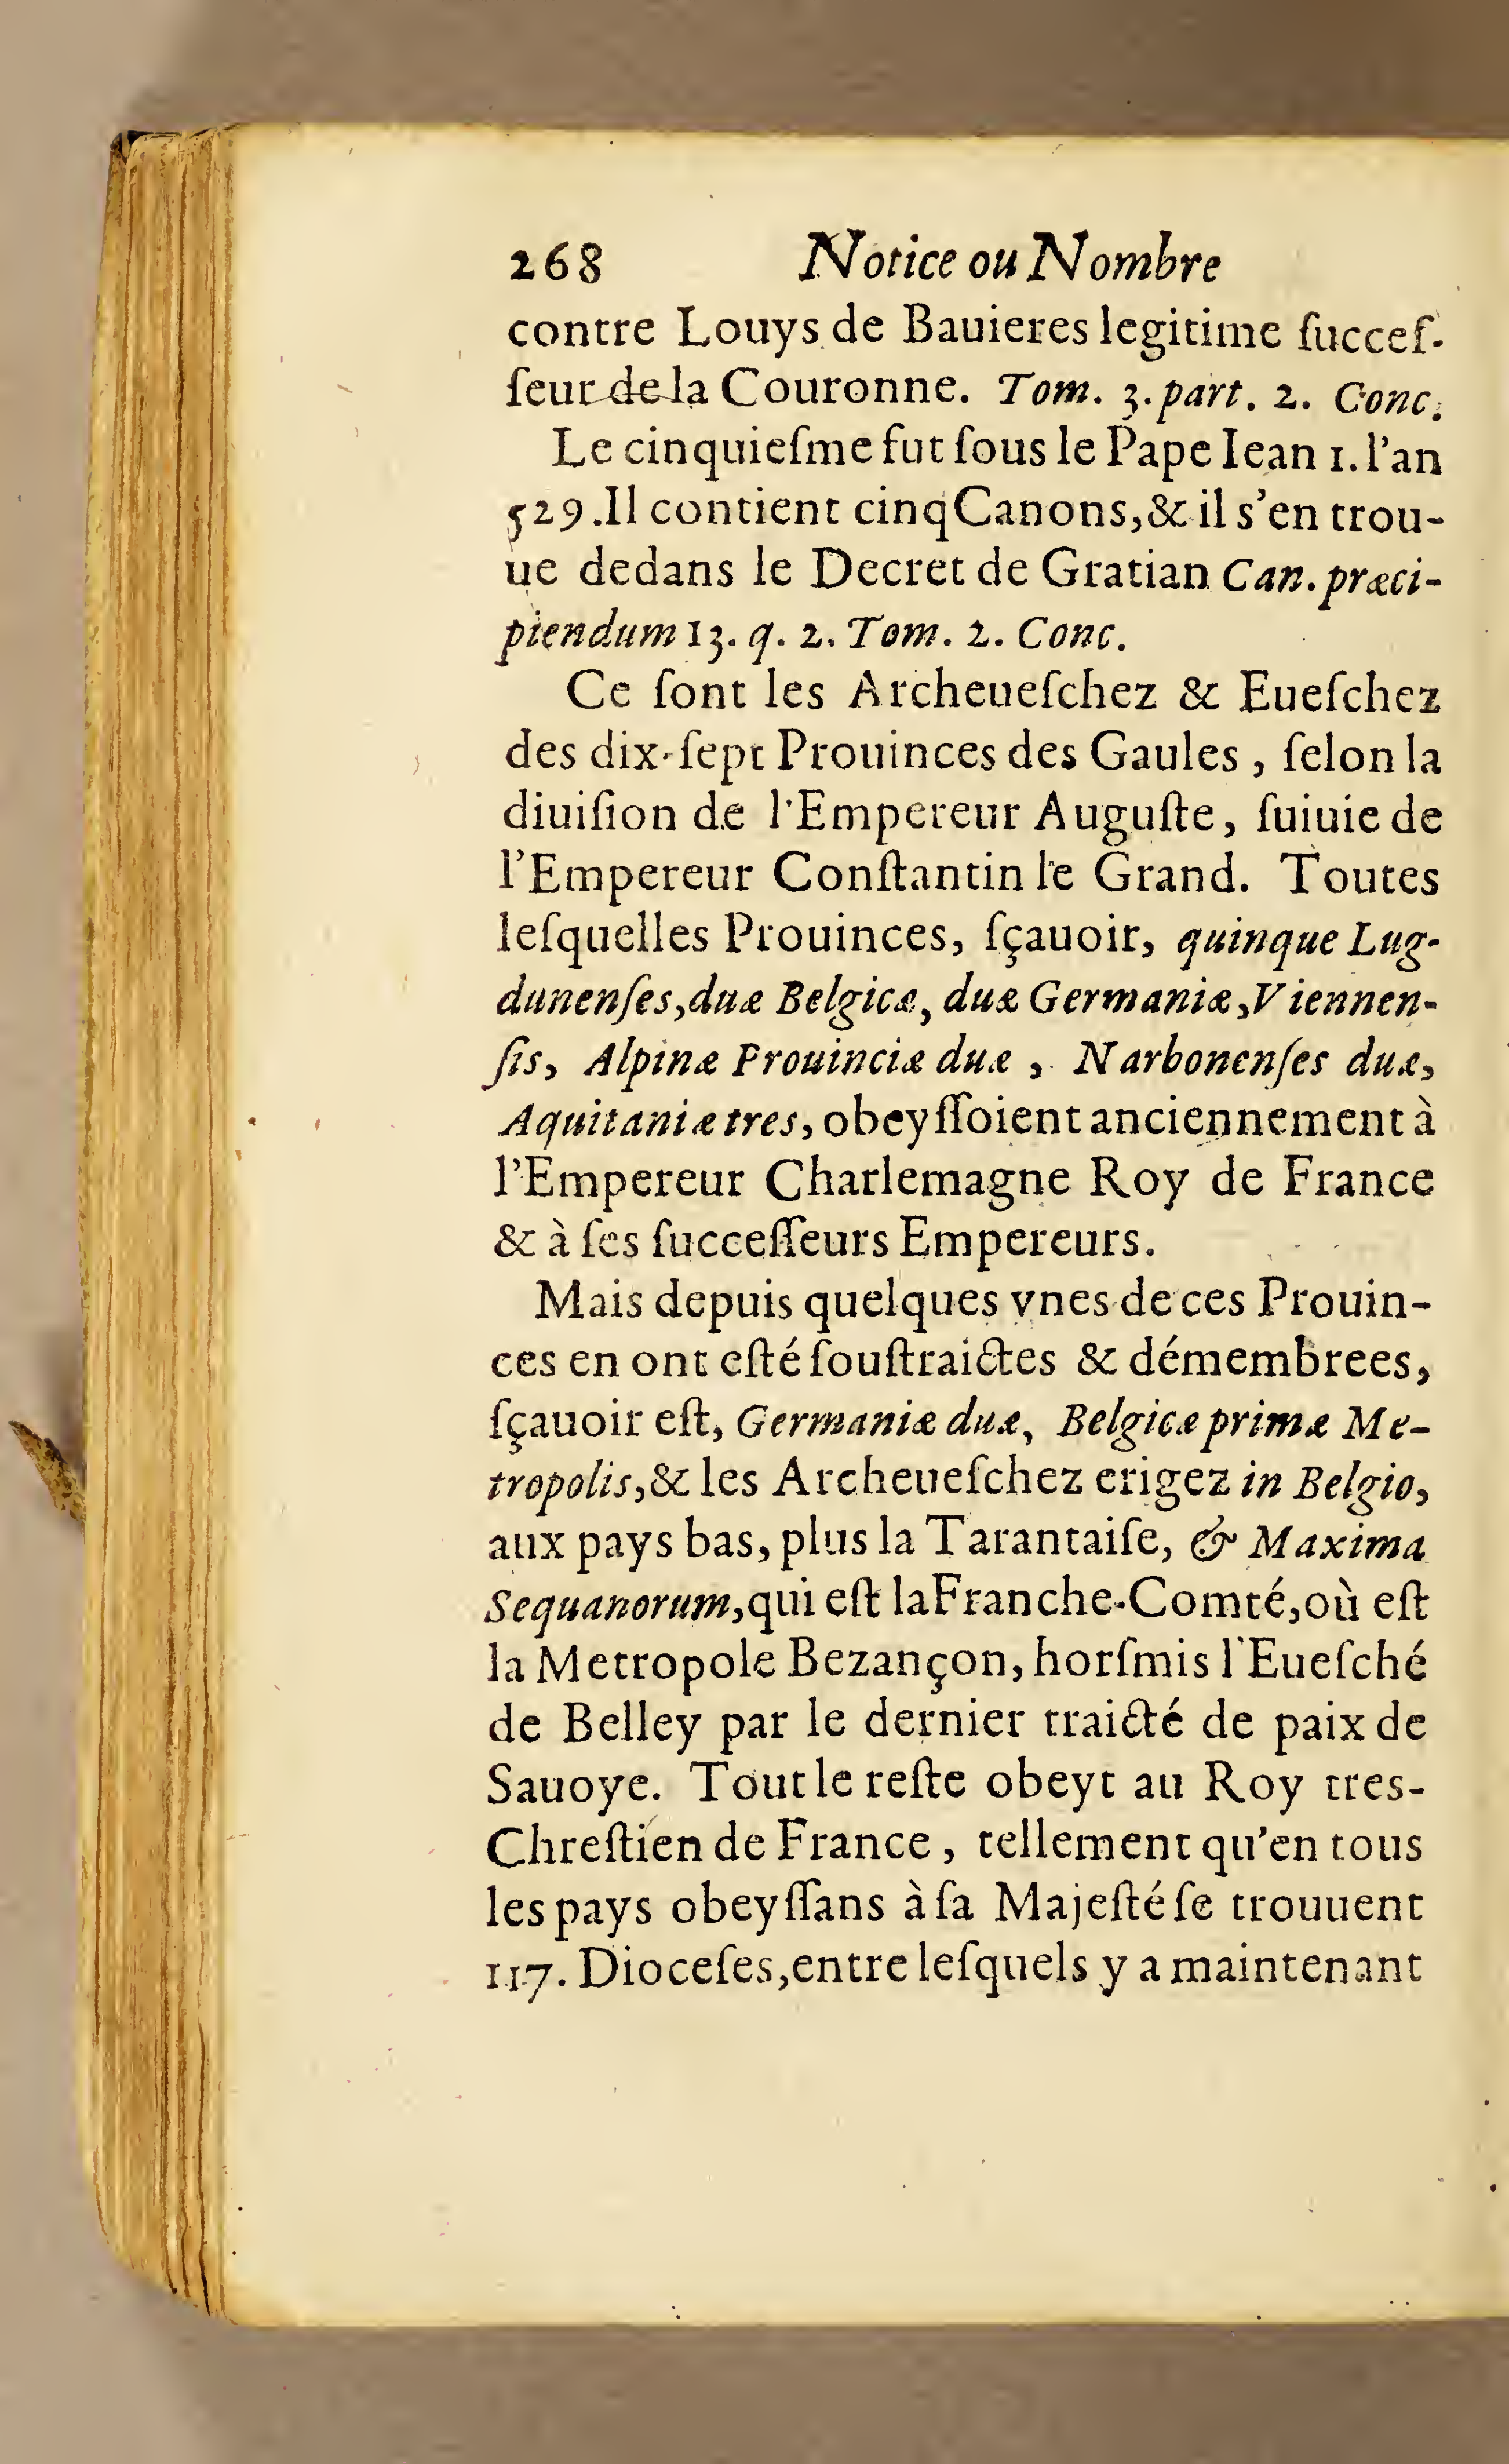 268 Notice ou Nombre
contre Louys de Bauieres legitime ſucceſ-
ſeur de la Couronne. Tom. 3. part. 2. Conc.
Le cinquieſme fut ſous le Pape Iean 1. l'an
529. Il contient cinq Canons, & il s'en trou-
ue dedans le Decret de Gratian Can. præci-
piendum 13. q. 2. Tom. 2. Conc.
Ce ſont les Archeueſchez & Eueſchez
des dix-ſept Prouinces des Gaules, ſelon la
diuiſion de l'Empereur Auguſte, ſuiuie de
l'Empereur Conſtantin le Grand. Toutes
leſquelles Prouinces, ſçauoir, quinque Lug-
dunenſes, duæ Belgicæ, duæ Germaniæ, Viennen-
ſis, Alpinæ Prouinciæ duæ, Narbonenſes duæ,
Aquitaniæ tres, obeyſſoient anciennement à
l'Empereur Charlemagne Roy de France
& à ſes ſucceſſeurs Empereurs.
Mais depuis quelques vnes de ces Prouin-
ces en ont eſté ſouſtraictes & démembrees,
ſçauoir eſt, Germaniæ duæ, Belgicæ primæ Me-
tropolis, & les Archeueſchez erigez in Belgio,
aux pays bas, plus la Tarantaiſe, & Maxima
Sequanorum, qui eſt la Franche-Comté, où eſt
la Metropole Bezançon, horſmis l'Eueſché
de Belley par le dernier traicté de paix de
Sauoye. Tout le reſte obeyt au Roy tres-
Chreſtien de France, tellement qu'en tous
les pays obeyſſans à ſa Majeſté ſe trouuent
117. Dioceſes, entre leſquels y a maintenant